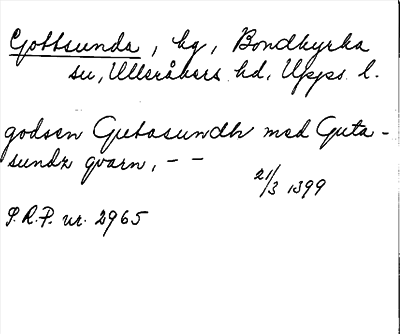 Gottsunda, hg, Bondkyrka
sn, Ulleråkers hd, Upps. l.
godsen Gutasundh med Guta-
sundz qvarn, - -
21/3 1399
S.R.P. nr. 2965